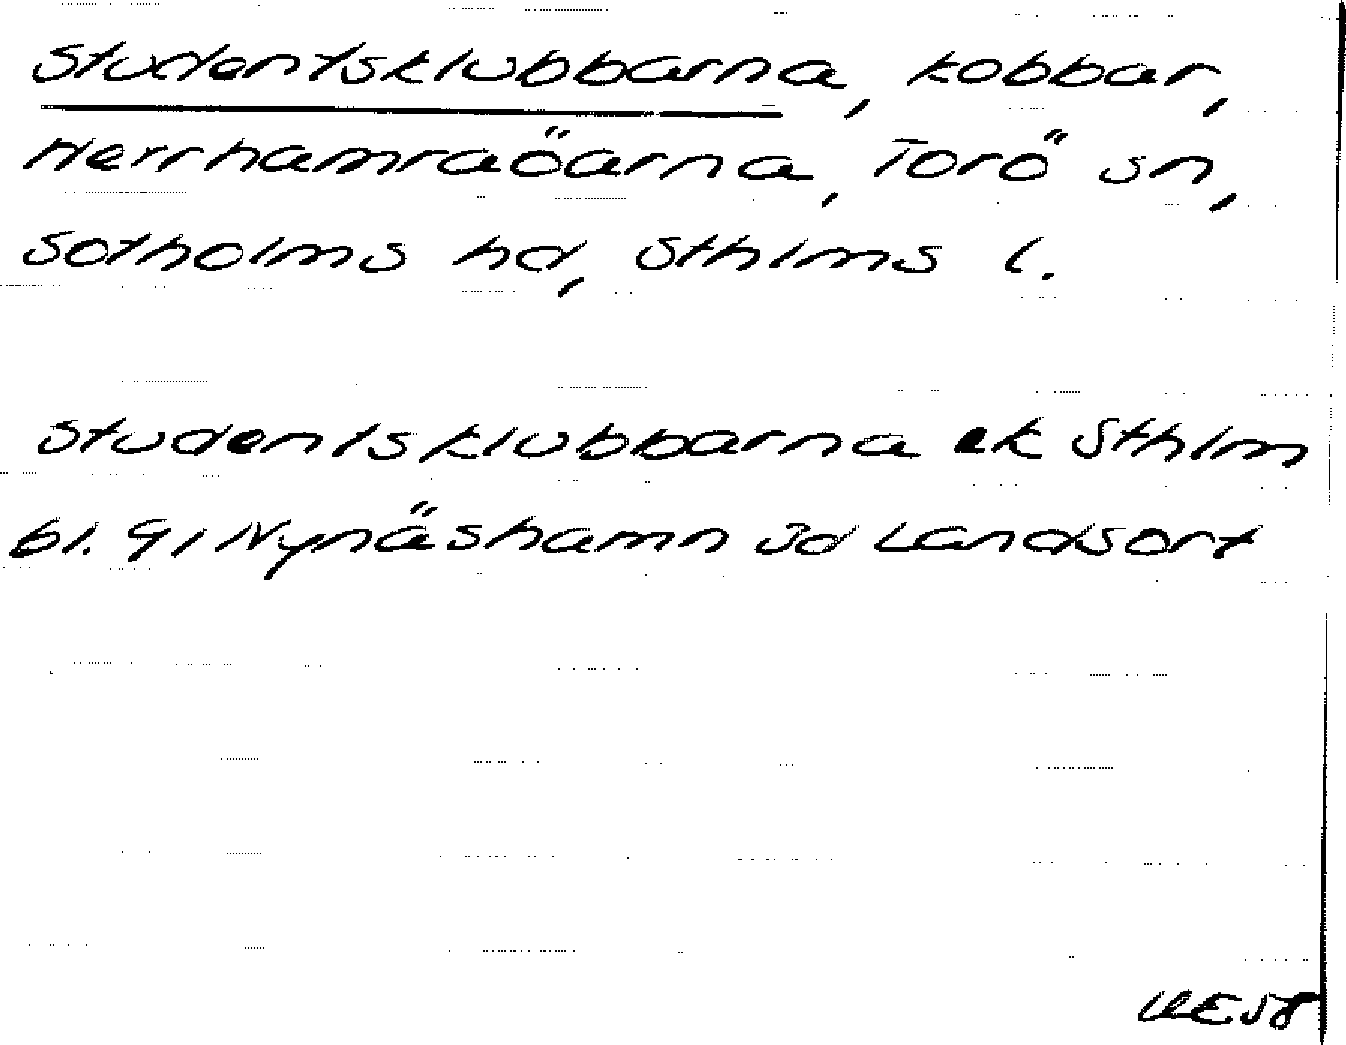 Studentsklubbarna, kobbar,
Herrhamraöarna, Torö sn,
Sotholms hd, Sthlms l.
Studentsklubbarna ek Sthlm
bl. 91 Nynäshamn Id Landsort